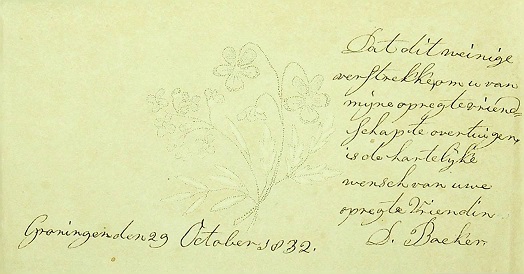 Dat dit weinige
verstrekke om u van
mijne opregte vriend-
schap te overtuigen,
is de hartelijke
wensch van uwe
opregte Vriendin
D. Backer
Groningen den 29 October 1832.